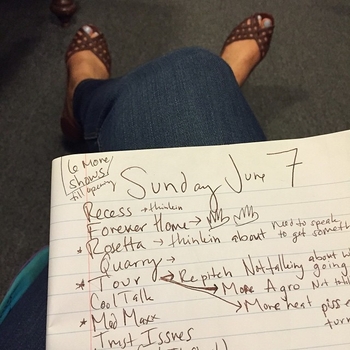 6 More
shows
till opening
Sunday June 7
Recess → thinkin
Forever Home →
* Rosetta → thinkin about need to speak
to get someth
Quarry →
* Tour → Repitch Not talking about w
going
→ More Agro Not
Cool Talk
→ More heat plus
turn
* Mad Maxx
Trust Issues